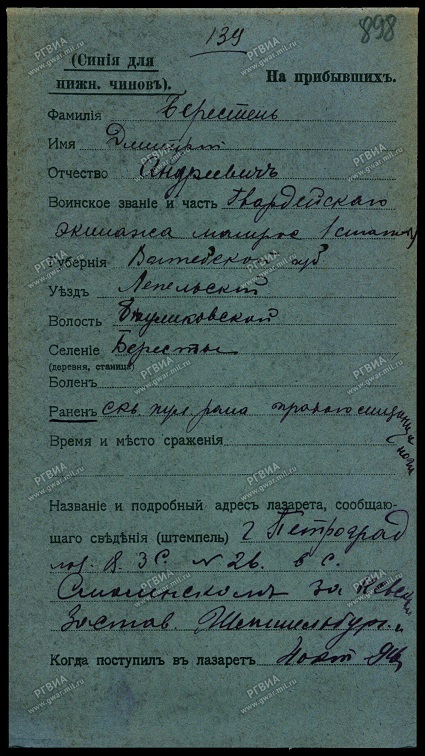 139
898
(Синія для
нижн. чиновъ).
На прибывшихъ.
Фамилія Берестень
Имя Дмитрій
Отчество Андреевичъ
Воинское званіе и часть Гвардейскаго
экипажа 1 статьи
Губернія Витебской губ
Уѣздъ Лепельской
Волость
Селеніе Бересты
(деревня, станица)
Боленъ
Раненъ скв. пул. рана праваго
ноги
Время и мѣсто сраженія
Названіе и подробный адресъ лазарета, сообщаю-
щаго свѣдѣнія (штемпель) г Петроградъ
N 26. в с.
Смоленскомъ за Невск
Застав.
Когда поступилъ въ лазаретъ
РГВИА
www.gwar.mil.ru